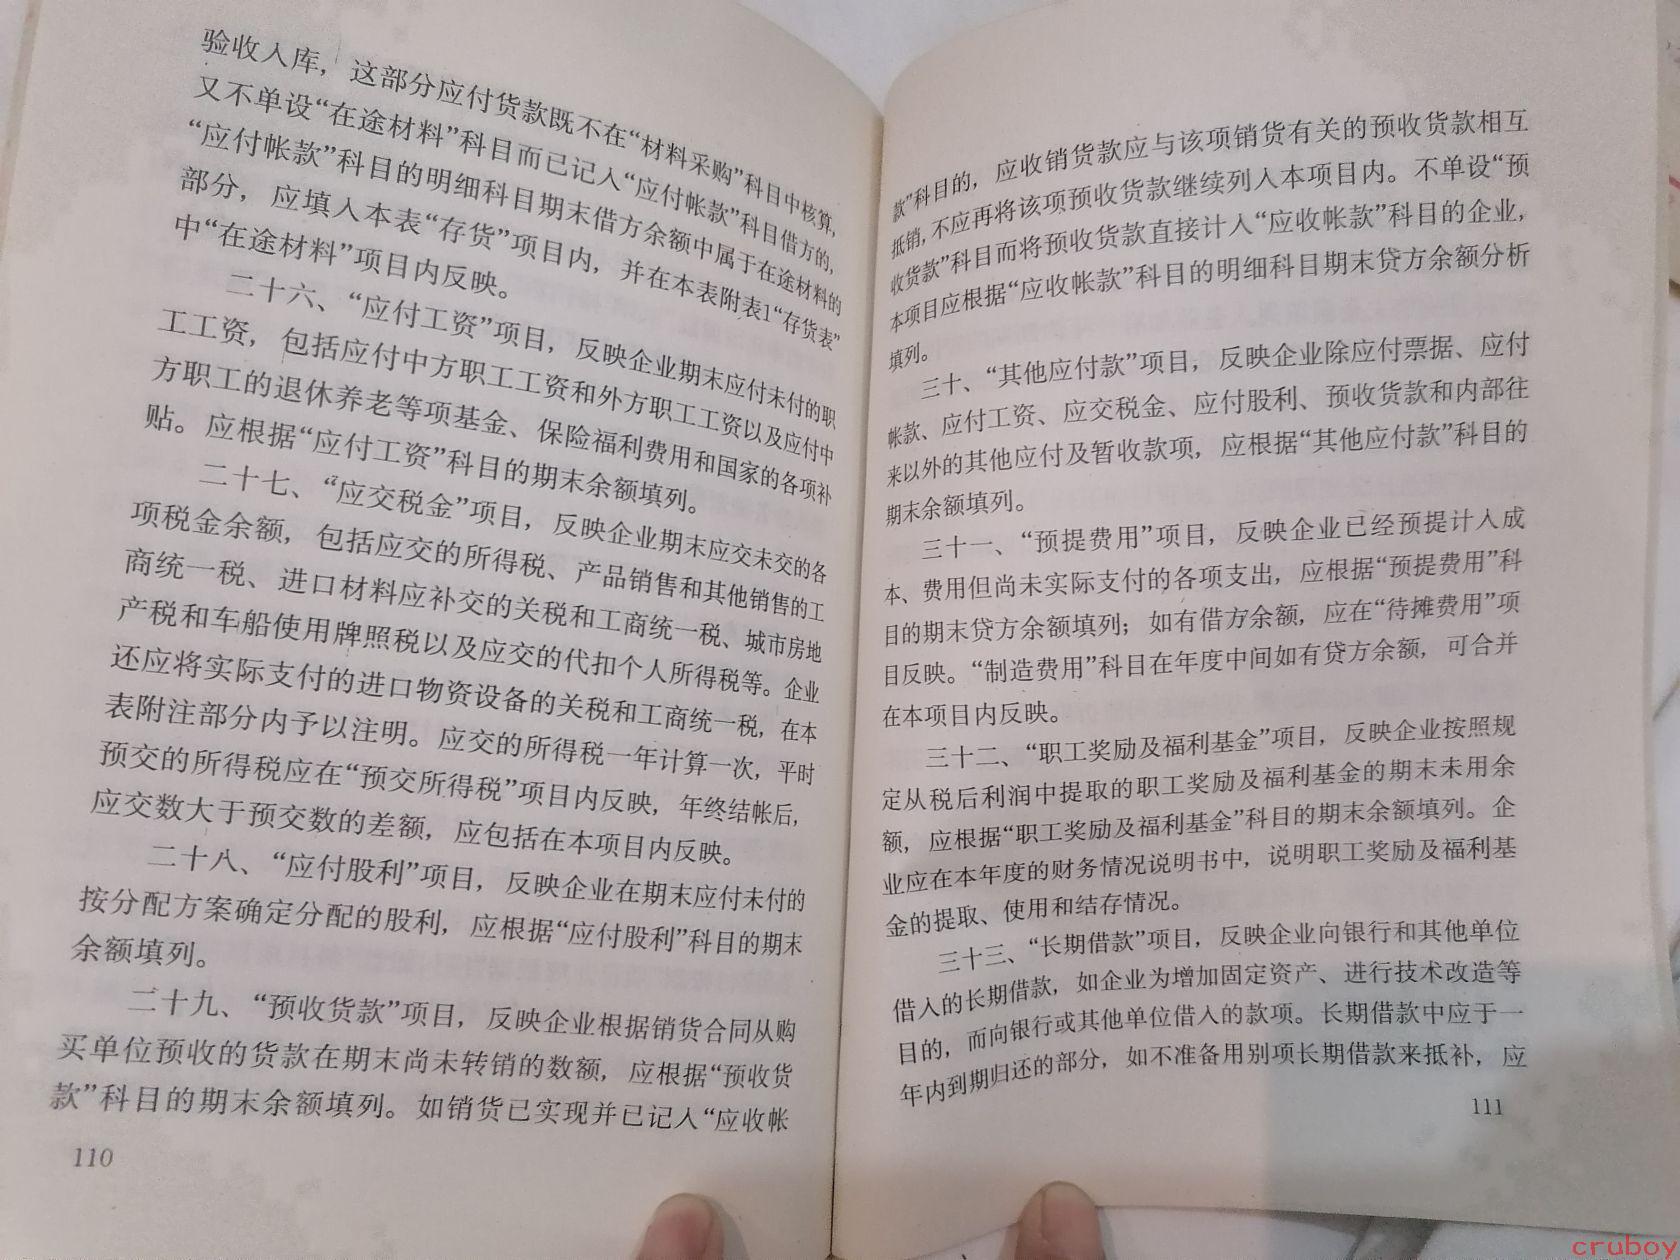 验收入库，这部分应付货款既不在“材料采购”科目中核算，
又不单设“在途材料”科目而已记入“应付帐款”科目借方的，
“应付帐款”科目的明细科目期末借方余额中属于在途材料的
部分，应填入本表“存货”项目内，并在本表附表1“存货表”
中“在途材料”项目内反映。
二十六、“应付工资”项目，反映企业期末应付未付的职
工工资，包括应付中方职工工资和外方职工工资以及应付中
方职工的退休养老等项基金、保险福利费用和国家的各项补
贴。应根据“应付工资”科目的期末余额填列。
二十七、“应交税金”项目，反映企业期末应交未交的各
项税金余额，包括应交的所得税、产品销售和其他销售的工
商统一税、进口材料应补交的关税和工商统一税、城市房地
产税和车船使用牌照税以及应交的代扣个人所得税等。企业
还应将实际支付的进口物资设备的关税和工商统一税，在本
表附注部分内予以注明。应交的所得税一年计算一次，平时
预交的所得税应在“预交所得税”项目内反映，年终结帐后，
应交数大于预交数的差额，应包括在本项目内反映。
二十八、“应付股利”项目，反映企业在期末应付未付的
按分配方案确定分配的股利，应根据“应付股利”科目的期末
余额填列。
二十九、“预收货款”项目，反映企业根据销货合同从购
买单位预收的货款在期末尚未转销的数额，应根据“预收货
款”科目的期末余额填列。如销货已实现并已记入“应收帐
110
款”科目的，应收销货款应与该项销货有关的预收货款相互
抵销，不应再将该项预收货款继续列入本项目内。不单设“预
收货款”科目而将预收货款直接计入“应收帐款”科目的企业，
本项目应根据“应收帐款”科目的明细科目期末贷方余额分析
填列。
三十、“其他应付款”项目，反映企业除应付票据、应付
帐款、应付工资、应交税金、应付股利、预收货款和内部往
来以外的其他应付及暂收款项，应根据“其他应付款”科目的
期末余额填列。
三十一、“预提费用”项目，反映企业已经预提计入成
本、费用但尚未实际支付的各项支出，应根据“预提费用”科
目的期末贷方余额填列；如有借方余额，应在“待摊费用”项
目反映。“制造费用”科目在年度中间如有贷方余额，可合并
在本项目内反映。
三十二、“职工奖励及福利基金”项目，反映企业按照规
定从税后利润中提取的职工奖励及福利基金的期末未用余
额，应根据“职工奖励及福利基金”科目的期末余额填列。企
业应在本年度的财务情况说明书中，说明职工奖励及福利基
金的提取、使用和结存情况。
三十三、“长期借款”项目，反映企业向银行和其他单位
借入的长期借款，如企业为增加固定资产、进行技术改造等
目的，而向银行或其他单位借入的款项。长期借款中应于一
年内到期归还的部分，如不准备用别项长期借款来抵补，应
111
cruboy